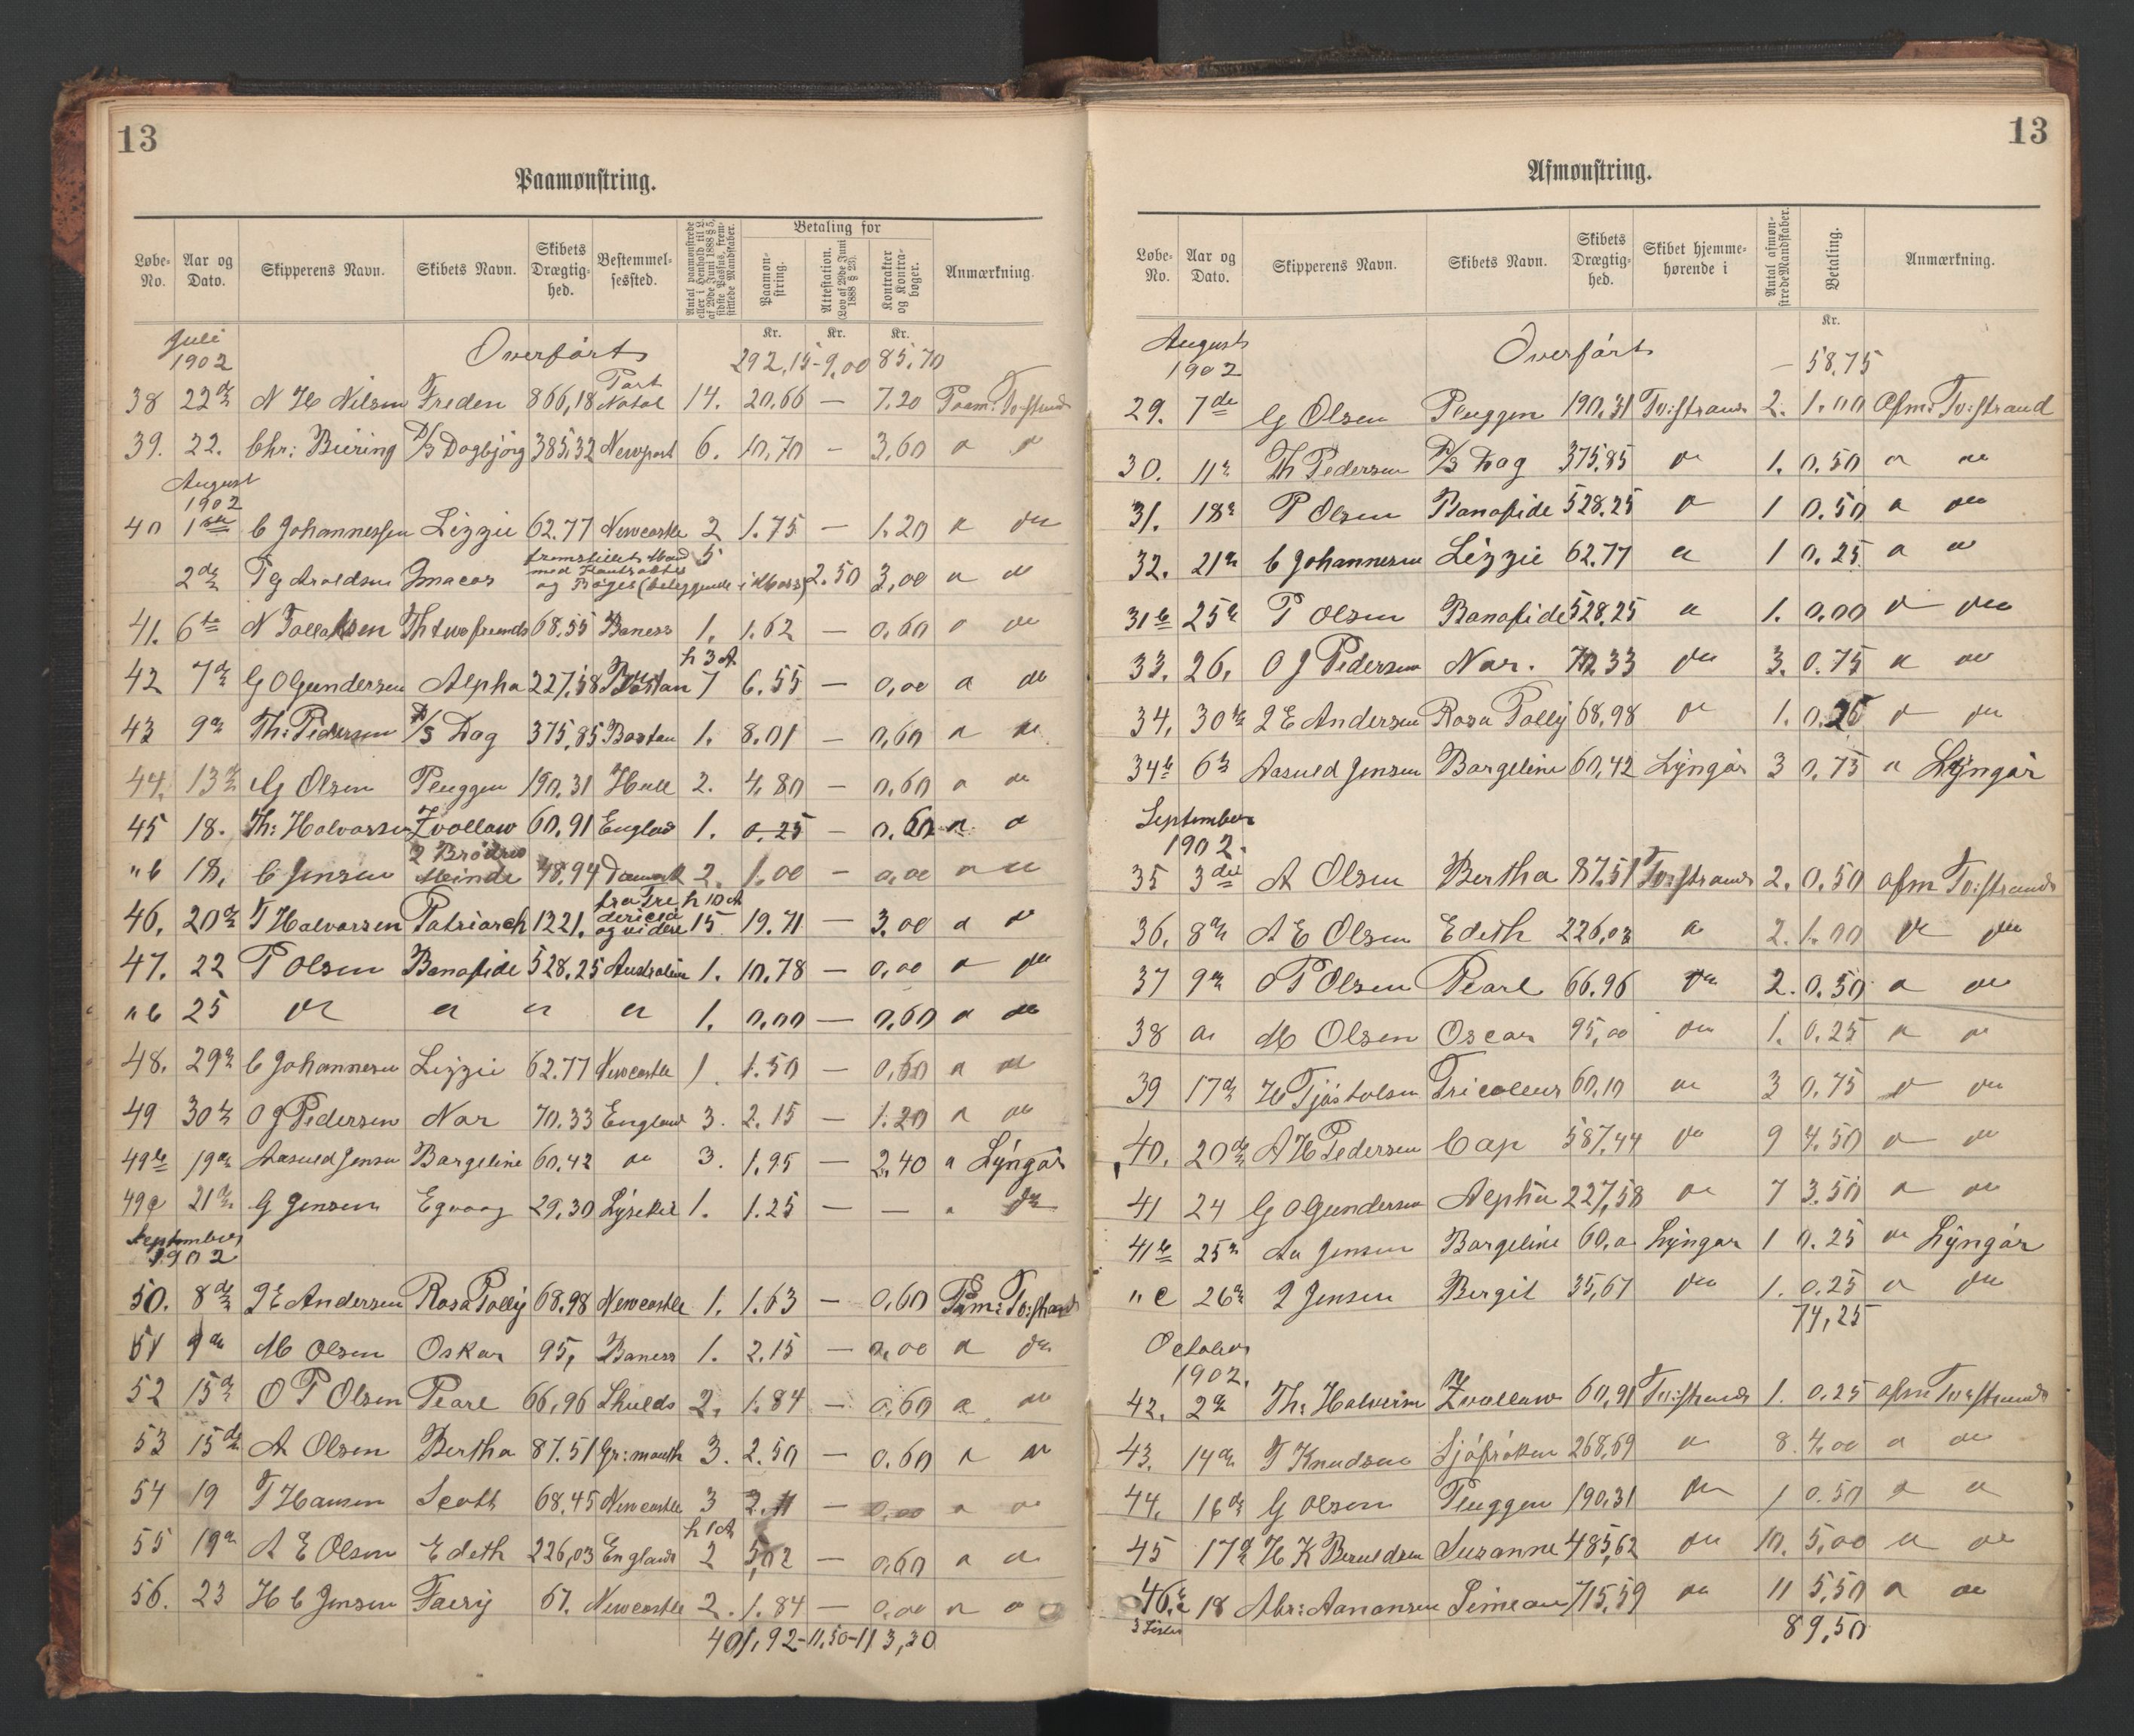 13
Paamønstring.
Løbe-No. Aar og Dato. Skipperens Navn. Skibets Navn. Skibets Drægtig-hed. Bestemmel-sessted. Antal paamønstrede eller i Henhold til L. af 29de Juni 1888 § 5, sidste Passus, frem-stillede Mandskaber. Betaling for Paamøn-string. Attestation. (Lov af 29de Juni 1888 § 23). Kontrakter og Kontra-bøger. Anmærkning.
Kr. Kr. Kr.
Juli 1902 Overført 292,15 - 9,00 85,70
38 22de N H Nilsen Freden 866,18 Port Natal 14. 20.66 — 7.20 Paam: Tv:strand
39. 22. Chr: Biering D/S Dagbjørg 385,32 Newport 6. 10,70 — 3,60 " "
August 1902
40 1ste C Johannessen Lizzie 62.77 Newcastle 2 1.75 — 1.20 " do
2de T G Aroldsen Imacos fremstillet Mand med Kontrakter og Bøger 5 2.50 3,00 " do
41. 6te N Tollaksen Th two friends 68.55 Baness 1. 1.62 — 0.60 " do
42 7de G O Gundersen Alpha 227,58 Boston h 3 A 7 6.55 — 0,00 " do
43 9de Th: Pedersen D/S Dag 375,85 Boston 1. 8.01 — 0,60 " do
44. 13de G Olsen Pluggen 190.31 Hull 2. 4.80 — 0,60 " do
45 18. Th: Halvorsen Zvollaw 60,91 England 1. 0.25 — 0.60 " "
" b 18, C Jensen 2 Brødres Minde 48.94 Danmark 2. 1.00 — 0,00 " "
46. 20de T Halvorsen Patriarch 1221. fra Fredericia og videre h 10 A 15 19.71 — 3.00 " "
47. 22 P Olsen Bonafide 528.25 Australien 1. 10.78 — 0,00 " do
" b 25 do " " " 1. 0,00 — 0,60 " do
48. 29de C Johannesen Lizzie 62.77 Newcastle 1. 1.50 — 0,60 " do
49 30te O J Pedersen Nor 70.33 England 3. 2.15 — 1.20 " do
49b 19de Aasuld Jensen Borgeline 60,42 do 3. 1,95 — 2,40 " Lyngør
49c 21de G Jensen Egvaag 29.30 Lysekil 1. 1.25 — — " do
September 1902
50. 8de J E Andersen Rosa Polly 68.98 Newcastle 1. 1.63 — 0,60 Paam: Tv:strand
51 9de M Olsen Oskar 95, Baness 1. 2.15 — 0,00 " do
52 15de O P Olsen Pearl 66,96 Shields 2. 1.84 — 0,60 " do
53 15de A Olsen Bertha 87.51 Gr:mouth 3. 2.50 — 0.60 " "
54 19 T Hansen Scott 68.45 Newcastle 3 2.11 — 0,00 " "
55 19de A E Olsen Edeth 226,03 England h 1 A 2 5,02 — 0,60 " "
56. 23 H C Jensen Faery 67. Newcastle 2. 1.84 — 0,00 " "
401,92 - 11,50 - 113,30
13
Afmønstring.
Løbe-No. Aar og Dato. Skipperens Navn. Skibets Navn. Skibets Drægtig-hed. Skibet hjemme-hørende i Antal afmøn-strede Mandskaber. Betaling. Anmærkning.
Kr.
August 1902 Overført — 58,75
29. 7de G Olsen Pluggen 190.31 Tv:strand 2. 1.00 Afm: Tv:strand
30. 11te Th Pedersen D/S Dag 375,85 do 1. 0.50 " do
31. 18de P Olsen Bonafide 528.25 " 1 0.50 " do
32. 21de C Johannesen Lizzie 62.77 " 1 0.25 " do
31b 25de P Olsen Bonafide 528,25 " 1. 0,00 " do
33. 26. O J Pedersen Nor. 70.33 do 3. 0.75 " do
34. 30te J E Andersen Rosa Polly 68,98 do 1. 0.25 " do
34b 6te Aasuld Jensen Borgeline 60,42 Lyngør 3 0,75 " Lyngør
September 1902.
35 3die A Olsen Bertha 87.51 Tv:strand 2. 0.50 afm Tv:strand
36. 8de A E Olsen Edeth 226,03 " 2. 1.00 do do
37 9de O P Olsen Pearl 66.96 do 2. 0.50 " do
38 do M Olsen Oscar 95,00 do 1. 0.25 " do
39 17de H Tjøstolsen Tricoleur 60,10 do 3 0.75 " do
40. 20de A H Pedersen Cap 587,44 do 9 4.50 " do
41 24 G O Gundersen Alpha 227,58 do 7 3.50 " do
41b 25de Aa Jensen Borgeline 60,0 Lyngør 1 0.25 do Lyngør
" c 26de J Jensen Bergit 35,67 do 1. 0.25 " do
74,25
October 1902.
42. 2de Th: Halvorsen Zvollaw 60,91 Tv:strand 1. 0.25 afm Tv:strand
43. 14de T Knudsen Sjøfrøken 268,69 " 8. 4,00 " do
44. 16de G Olsen Pluggen 190.31 do 1 0.50 " "
45 17de H K Bersuldsen Suzanne 485,62 do 10. 5,00 " do
46. 18 Abr: Aanonsen Simeon 715,59 do 11 5,50 " do
89,50